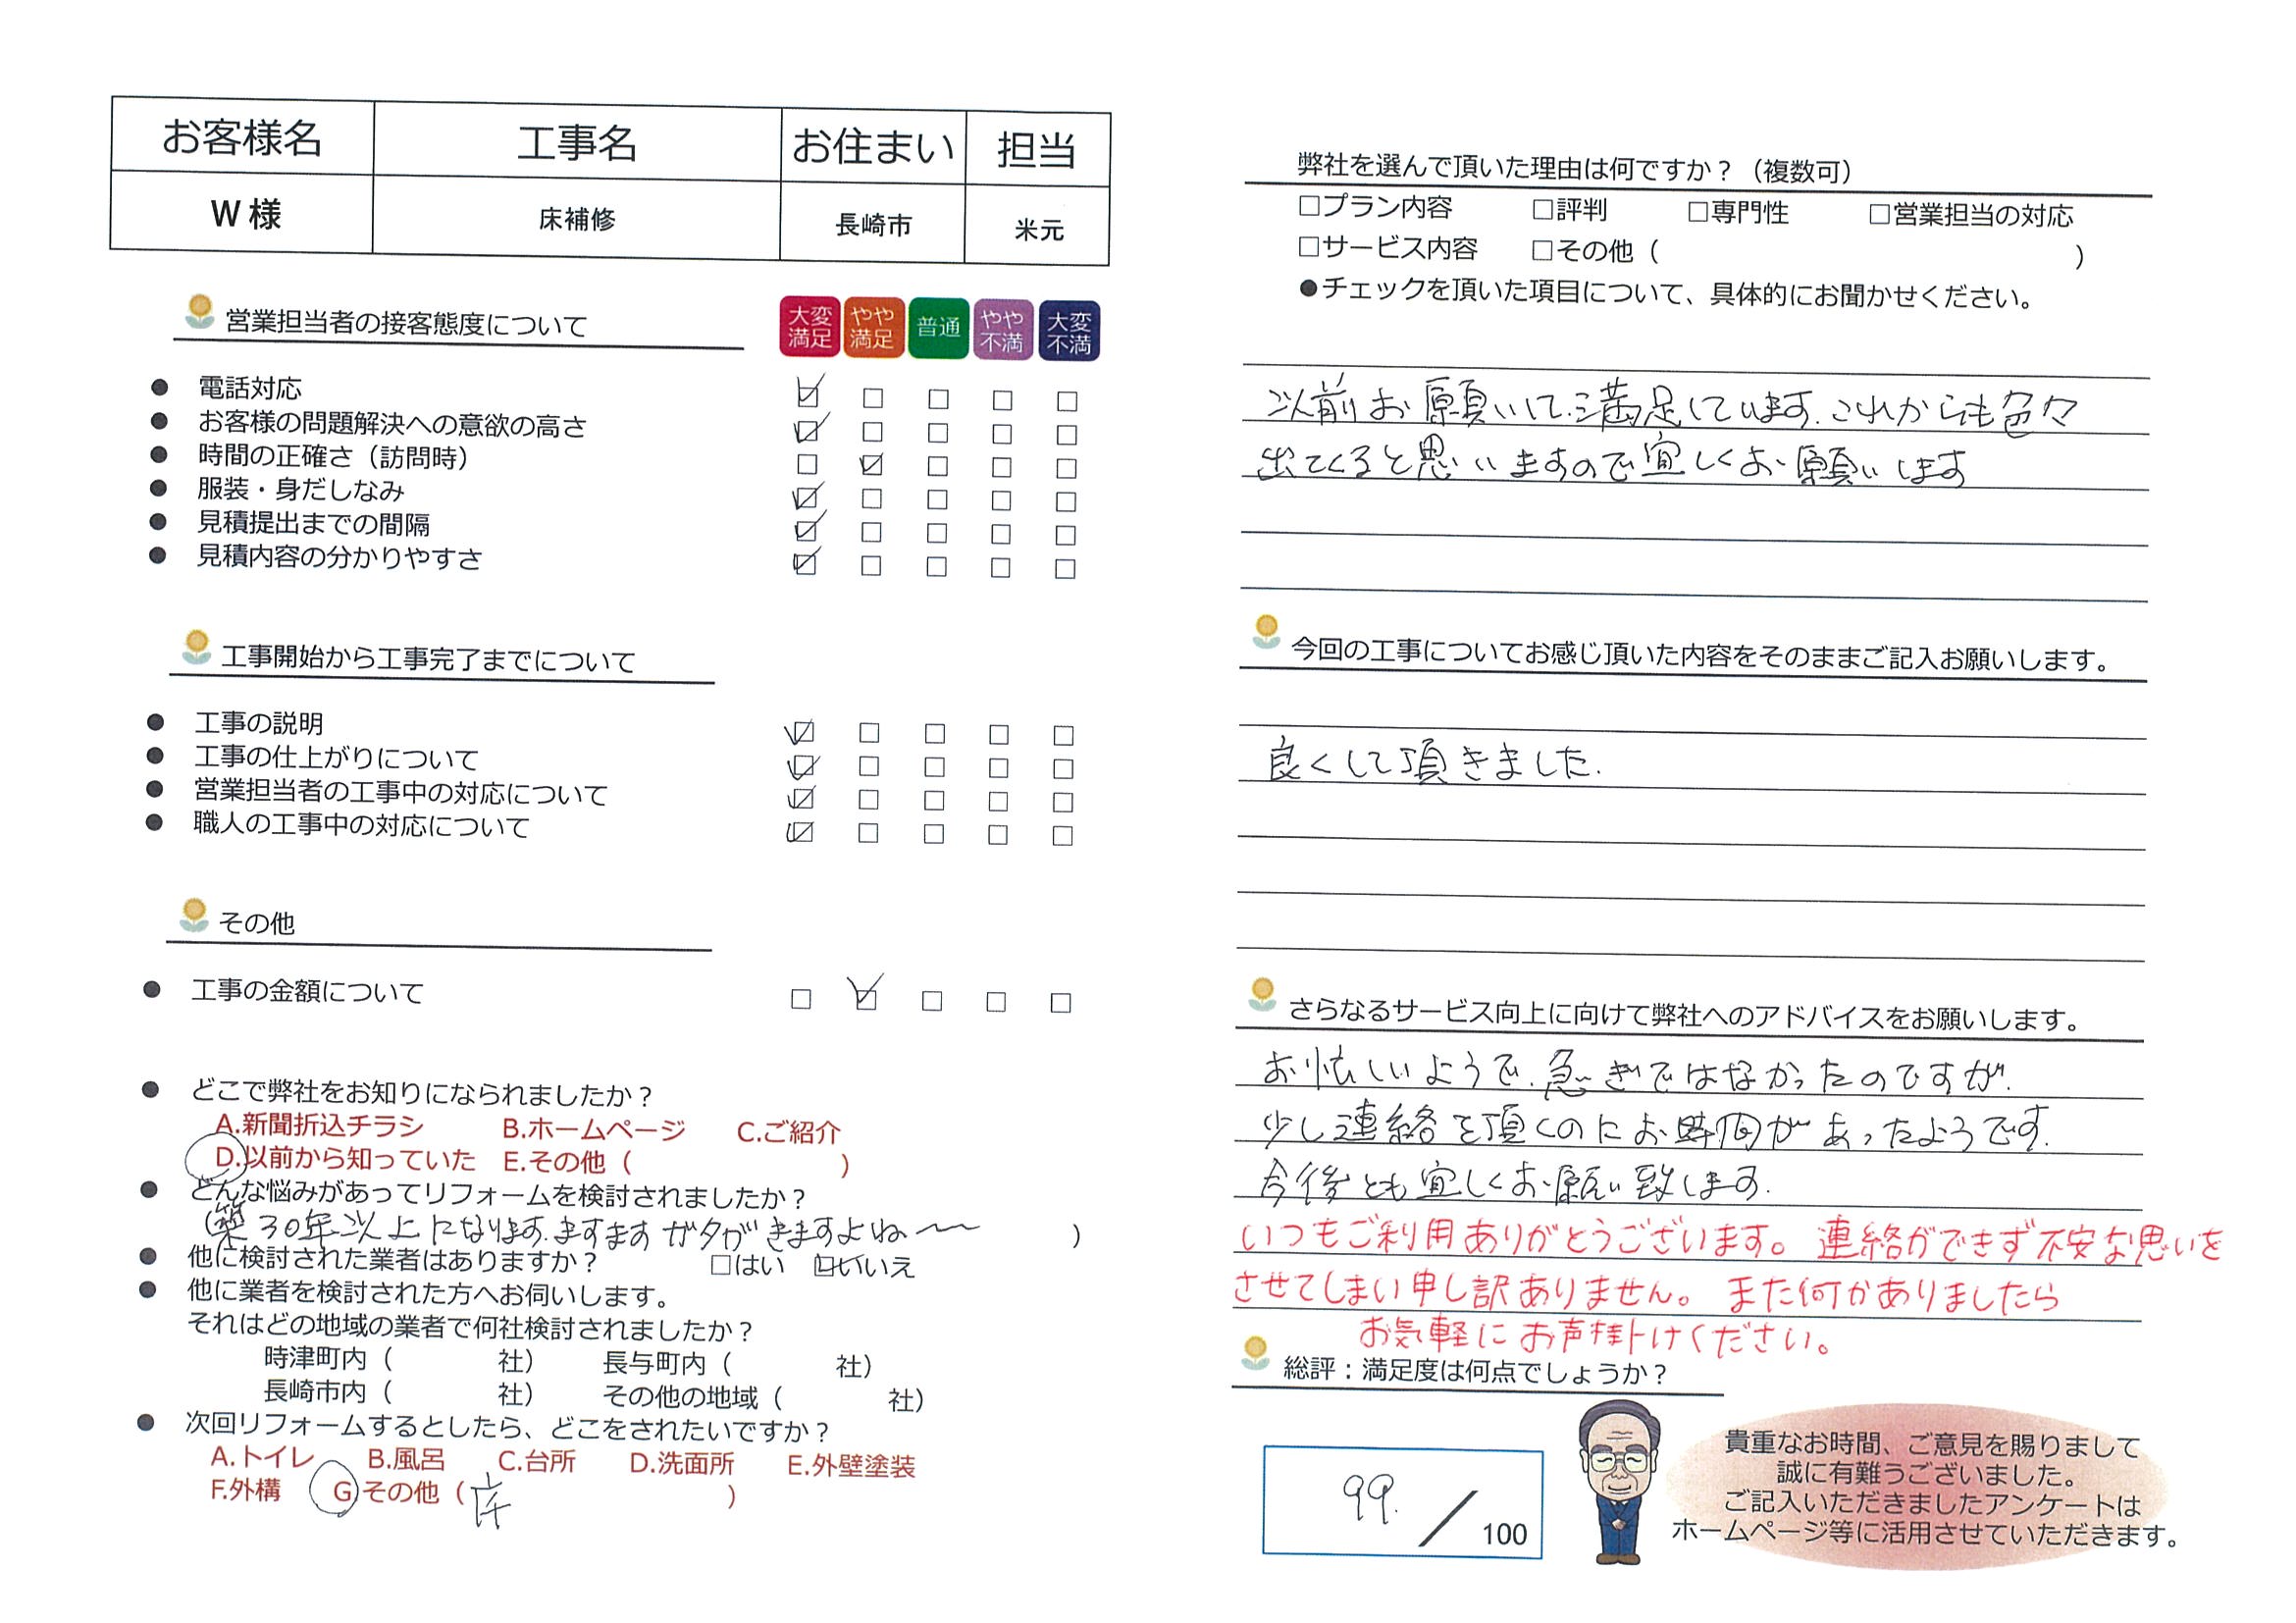 お客様名 工事名 お住まい 担当
W様 床補修 長崎市 米元
営業担当者の接客態度について 大変満足 やや満足 普通 やや不満 大変不満
● 電話対応 ☑ □ □ □ □
● お客様の問題解決への意欲の高さ ☑ □ □ □ □
● 時間の正確さ（訪問時） □ ☑ □ □ □
● 服装・身だしなみ ☑ □ □ □ □
● 見積提出までの間隔 ☑ □ □ □ □
● 見積内容の分かりやすさ ☑ □ □ □ □
工事開始から工事完了までについて
● 工事の説明 ☑ □ □ □ □
● 工事の仕上がりについて ☑ □ □ □ □
● 営業担当者の工事中の対応について ☑ □ □ □ □
● 職人の工事中の対応について ☑ □ □ □ □
その他
● 工事の金額について □ ☑ □ □ □
● どこで弊社をお知りになられましたか？
A.新聞折込チラシ B.ホームページ C.ご紹介
D.以前から知っていた E.その他（ ）
● どんな悩みがあってリフォームを検討されましたか？
（築30年以上になります.ますますガタがきますよね〜 ）
● 他に検討された業者はありますか？ □はい ☑いいえ
● 他に業者を検討された方へお伺いします。
それはどの地域の業者で何社検討されましたか？
時津町内（ 社） 長与町内（ 社）
長崎市内（ 社） その他の地域（ 社）
● 次回リフォームするとしたら、どこをされたいですか？
A.トイレ B.風呂 C.台所 D.洗面所 E.外壁塗装
F.外構 G.その他（床 ）
弊社を選んで頂いた理由は何ですか？（複数可）
□プラン内容 □評判 □専門性 □営業担当の対応
□サービス内容 □その他（ ）
●チェックを頂いた項目について、具体的にお聞かせください。
以前お願いして満足しています.これからも色々
出てくると思いますので宜しくお願いします
今回の工事についてお感じ頂いた内容をそのままご記入お願いします。
良くして頂きました.
さらなるサービス向上に向けて弊社へのアドバイスをお願いします。
お忙しいようで.急ぎではなかったのですが.
少し連絡を頂くのにお時間があったようです.
今後とも宜しくお願い致します.
いつもご利用ありがとうございます。連絡ができず不安な思いを
させてしまい申し訳ありません。また何かありましたら
お気軽にお声掛けください。
総評：満足度は何点でしょうか？
99. / 100
貴重なお時間、ご意見を賜りまして
誠に有難うございました。
ご記入いただきましたアンケートは
ホームページ等に活用させていただきます。